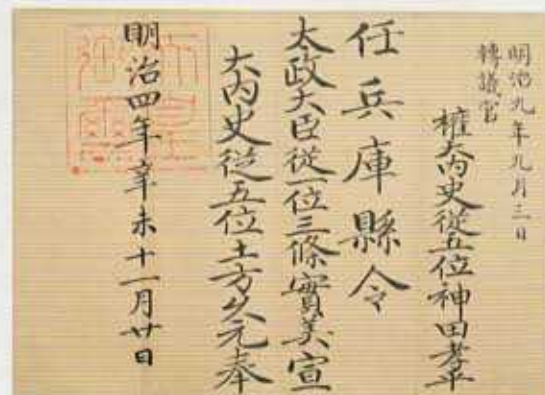 明治九年九月三日
轉議官
權大內史從五位神田孝平
任兵庫縣令
太政大臣從一位三條實美宣
大內史從五位土方久元奉
明治四年辛未十一月廿日